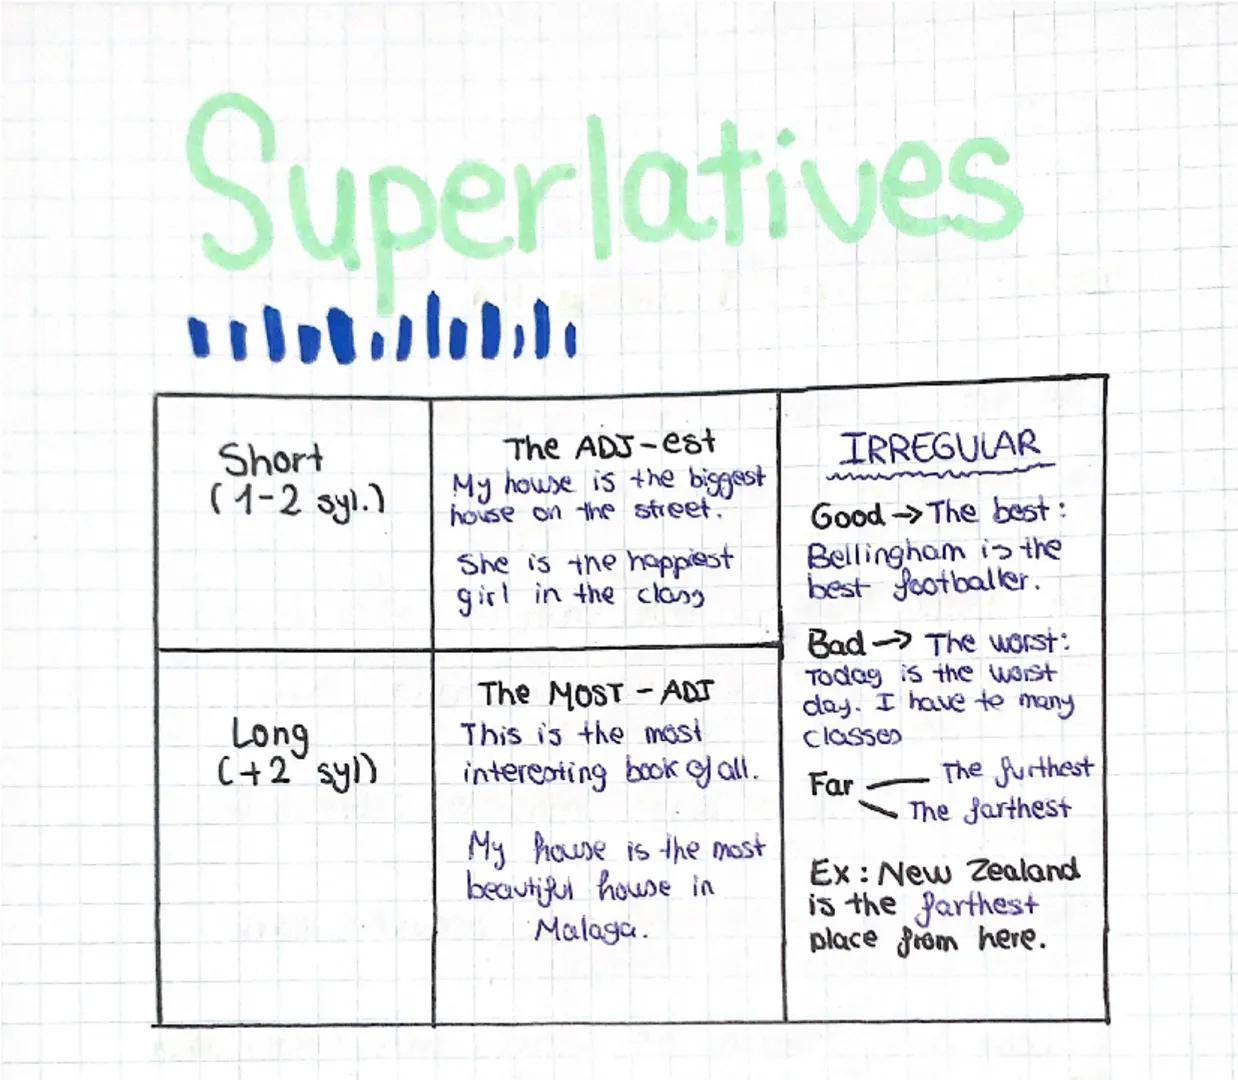 Superlatives
Short
(1-2 syl.)
The ADJ-est
My house is the biggest
house on the street.
She is the happiest
girl in the class
Long
(+2 syl)
The MOST - ADJ
This is the most
interesting book of all.
My house is the most
beautiful house in
Malaga.
IRREGULAR
Good → The best:
Bellingham is the
best footballer.
Bad → The worst:
Today is the worst
day. I have to many
classes
Far
The furthest
The farthest
Ex: New Zealand
is the farthest
place from here.